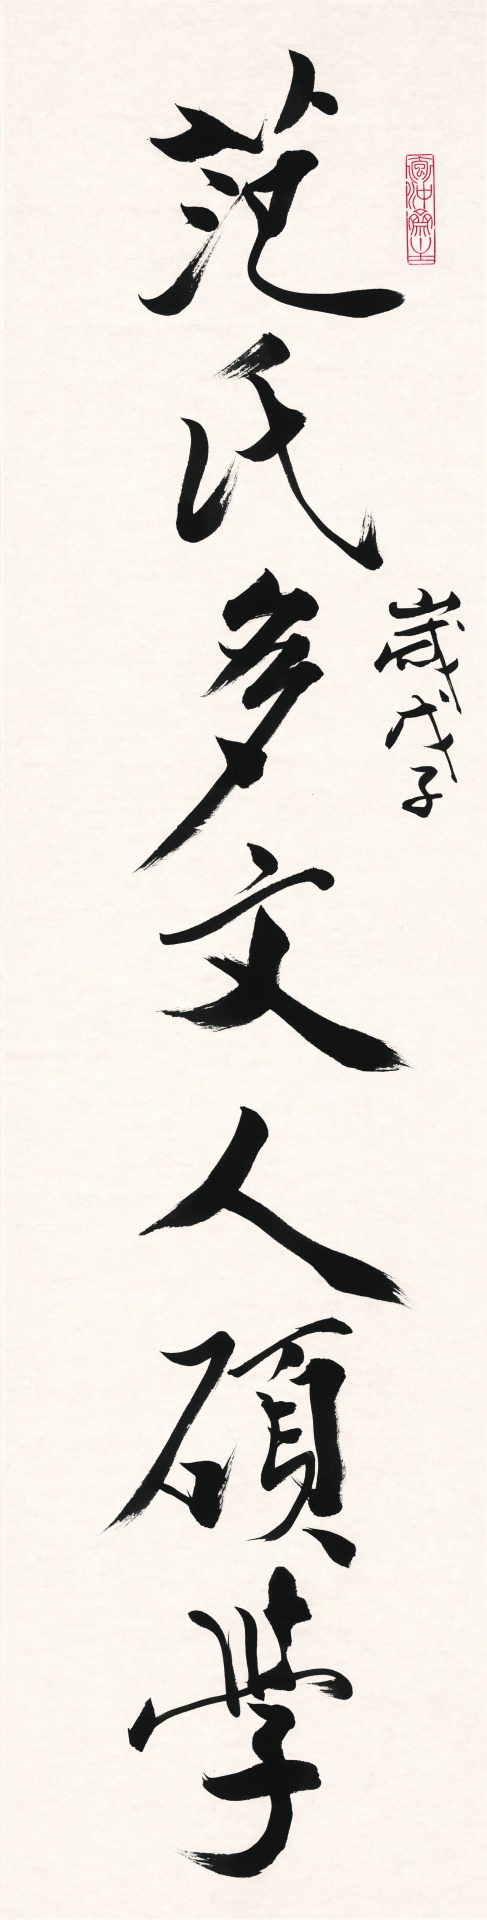 范氏多文人碩学
歲戊子